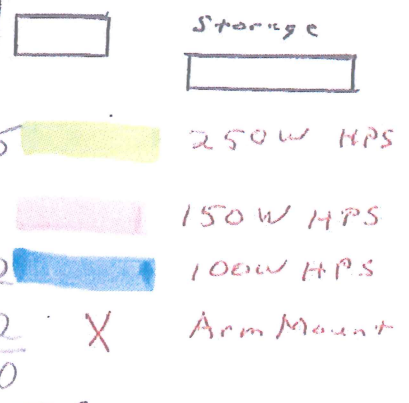 Storage
5 250W HPS
150W HPS
2 100W HPS
2 X Arm Mount
0